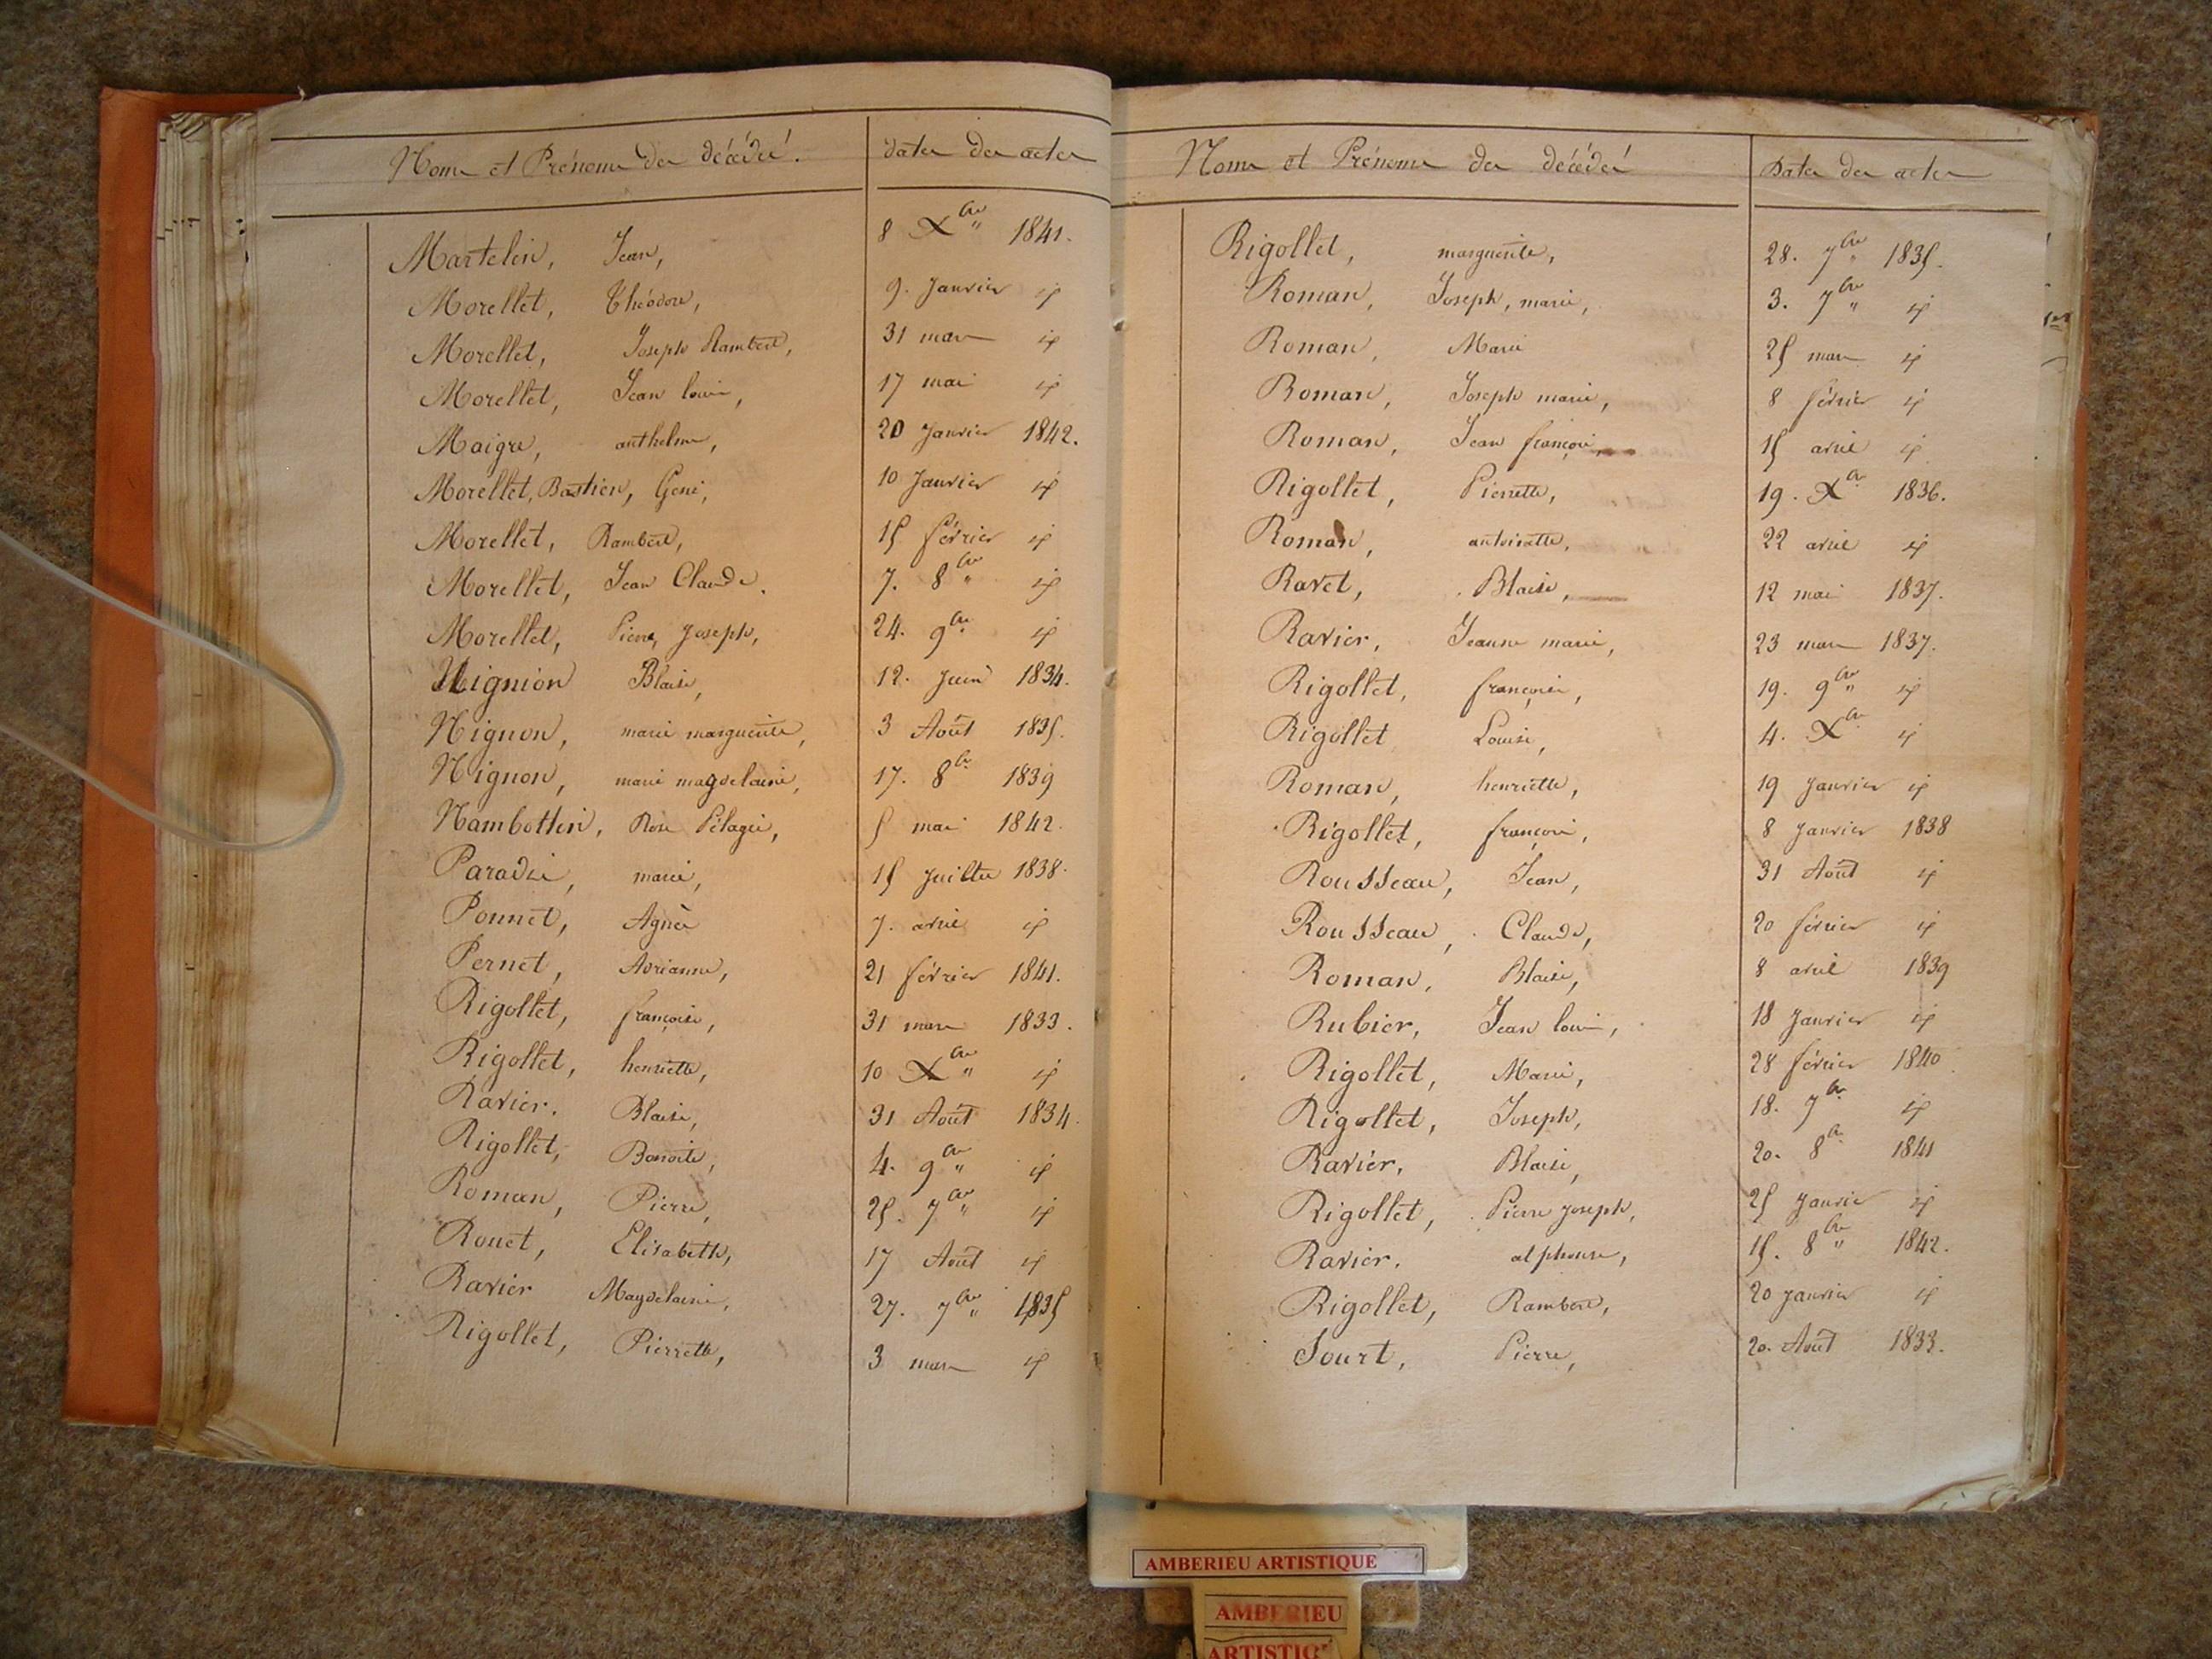 Noms et Prénoms des décédés. Dates des actes
Martelin, Jean, 8 Xbre 1841.
Morellet, Théodore, 9. Janvier id
Morellet, Joseph Rambert, 31 mars id
Morellet, Jean louis, 17 mai id
Maigre, anthelme, 20 Janvier 1842.
Morellet, Bastien, Gené, 10 Janvier id
Morellet, Rambert, 15 février id
Morellet, Jean Claude. 7. 8bre id
Morellet, Pierre, Joseph, 24. 9bre id
Nignion Blaise, 12. Juin 1834.
Nignon, marie marguerite, 3 Août 1835.
Nignon, marie magdelaine, 17. 8bre 1839
Nambottin, Rose Pélagie, 5 mai 1842.
Paradis, marie, 15 Juillet 1838.
Ponnet, Agnès 7. avril id
Pernet, Adrianne, 21 février 1841.
Rigollet, françoise, 31 mars 1833.
Rigollet, henriette, 10 Xbre id
Ravier. Blaise, 31 Août 1834.
Rigollet, Benoite, 4. 9bre id
Roman, Pierre, 25. 7bre id
Rouet, Elisabeth, 17 Août id
Ravier Magdelaine, 27. 7bre 1835
Rigollet, Pierrette, 3 mars id
Noms et Prénoms des décédés Dates des actes
Rigollet, marguerite, 28. 7bre 1835.
Roman, Joseph, marie, 3. 7bre id
Roman, Marie 25 mars id
Roman, Joseph marie, 8 février id
Roman, Jean françois, 15 avril id
Rigollet, Pierrette, 19. Xbre 1836.
Roman, antoinette, 22 avril id
Ravet, Blaise, 12 mai 1837.
Ravier, Jeanne marie, 23 mars 1837.
Rigollet, françoise, 19. 9bre id
Rigollet Louise, 4. Xbre id
Roman, henriette, 19 Janvier id
Rigollet, françois, 8 Janvier 1838
Rousseau, Jean, 31 Août id
Rousseau, Claude, 20 février id
Roman, Blaise, 8 avril 1839
Rubier, Jean louis, 18 Janvier id
Rigollet, Marie, 28 février 1840
Rigollet, Joseph, 18. 7bre id
Ravier, Blaise, 20. 8bre 1841
Rigollet, Pierre Joseph, 25 Janvier id
Ravier. alphonse, 15. 8bre 1842.
Rigollet, Rambert, 20 Janvier id
Sourt, Pierre, 20. Août 1833.
AMBERIEU ARTISTIQUE
AMBERIEU
ARTISTIQ